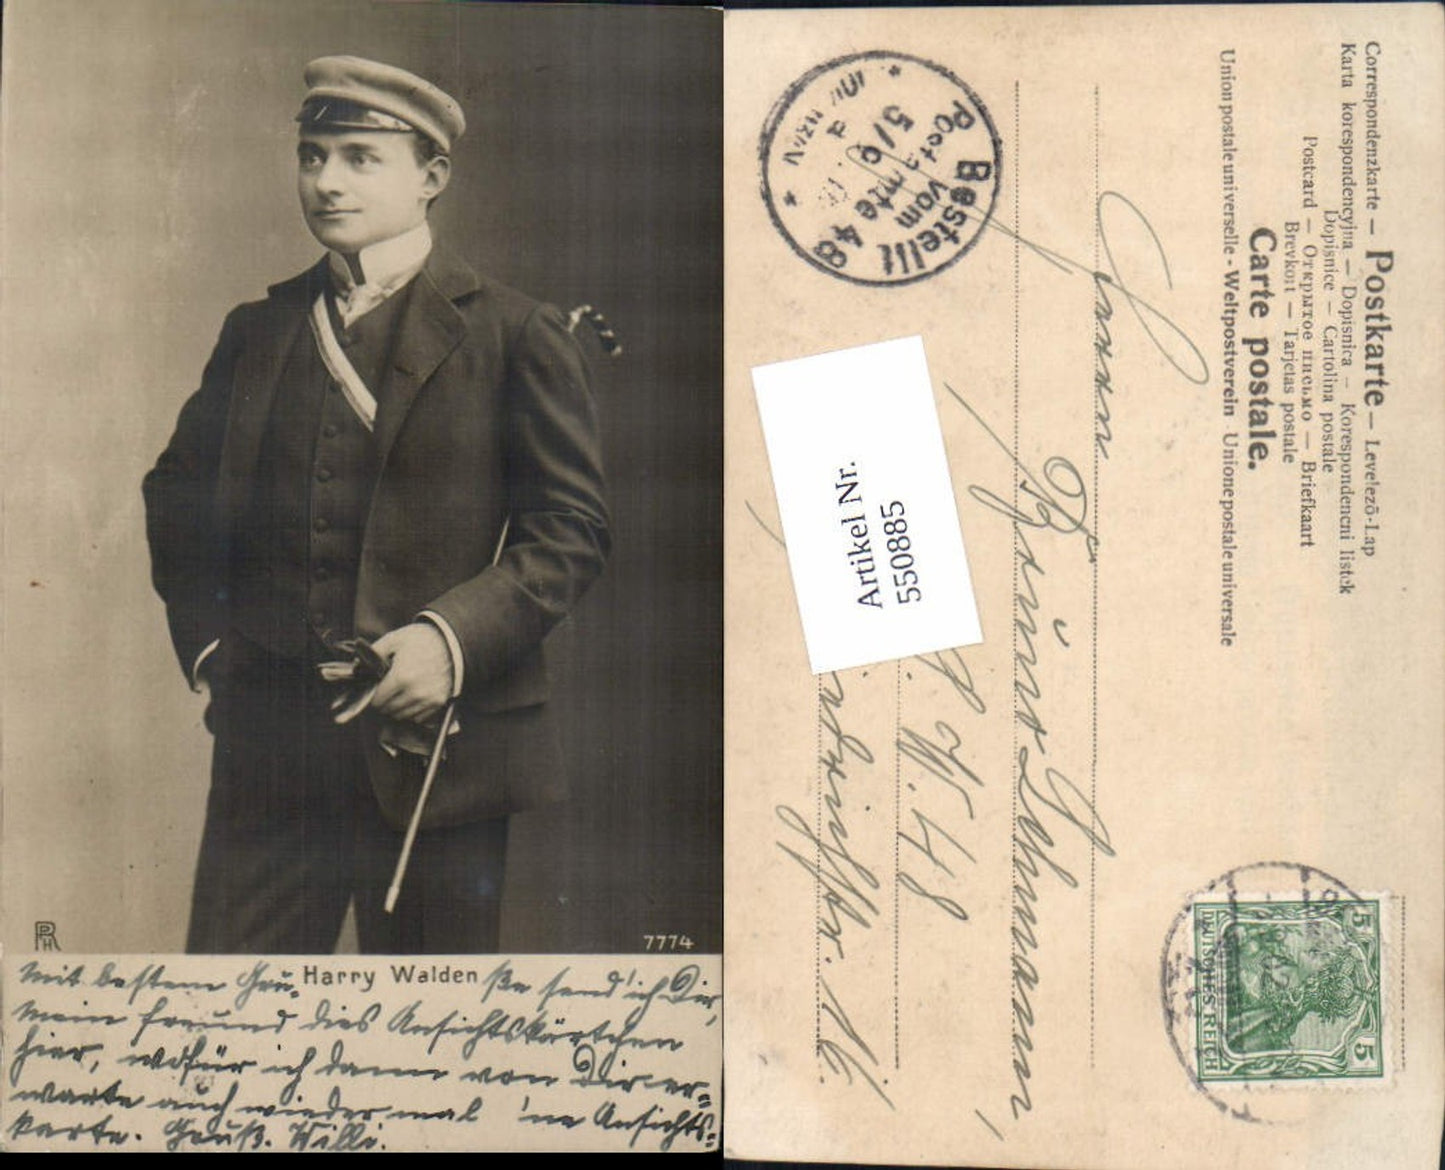 7774
Harry Walden
Mit bestem Grü-
ße send' ich Dir,
mein Freund dies Ansichtskärtchen
hier, wofür ich dann von Dir er-
warte auch wieder mal 'ne Ansichts-
karte. Gruß. Willi.
Correspondenzkarte — Postkarte — Levelező-Lap
Karta korespondencyjna — Dopisnica — Korespondencni listek
Dopisnice — Cartolina postale
Postcard — Открытое письмо — Briefkaart
Brevkort — Tarjetas postale
Carte postale.
Union postale universelle - Weltpostverein Unione postale universale
Bestellt
vom
Postamte 48
Herrn
Bruno Lehmann,
W. 48
16.
Artikel Nr.
550885
5
DEUTSCHES REICH
5